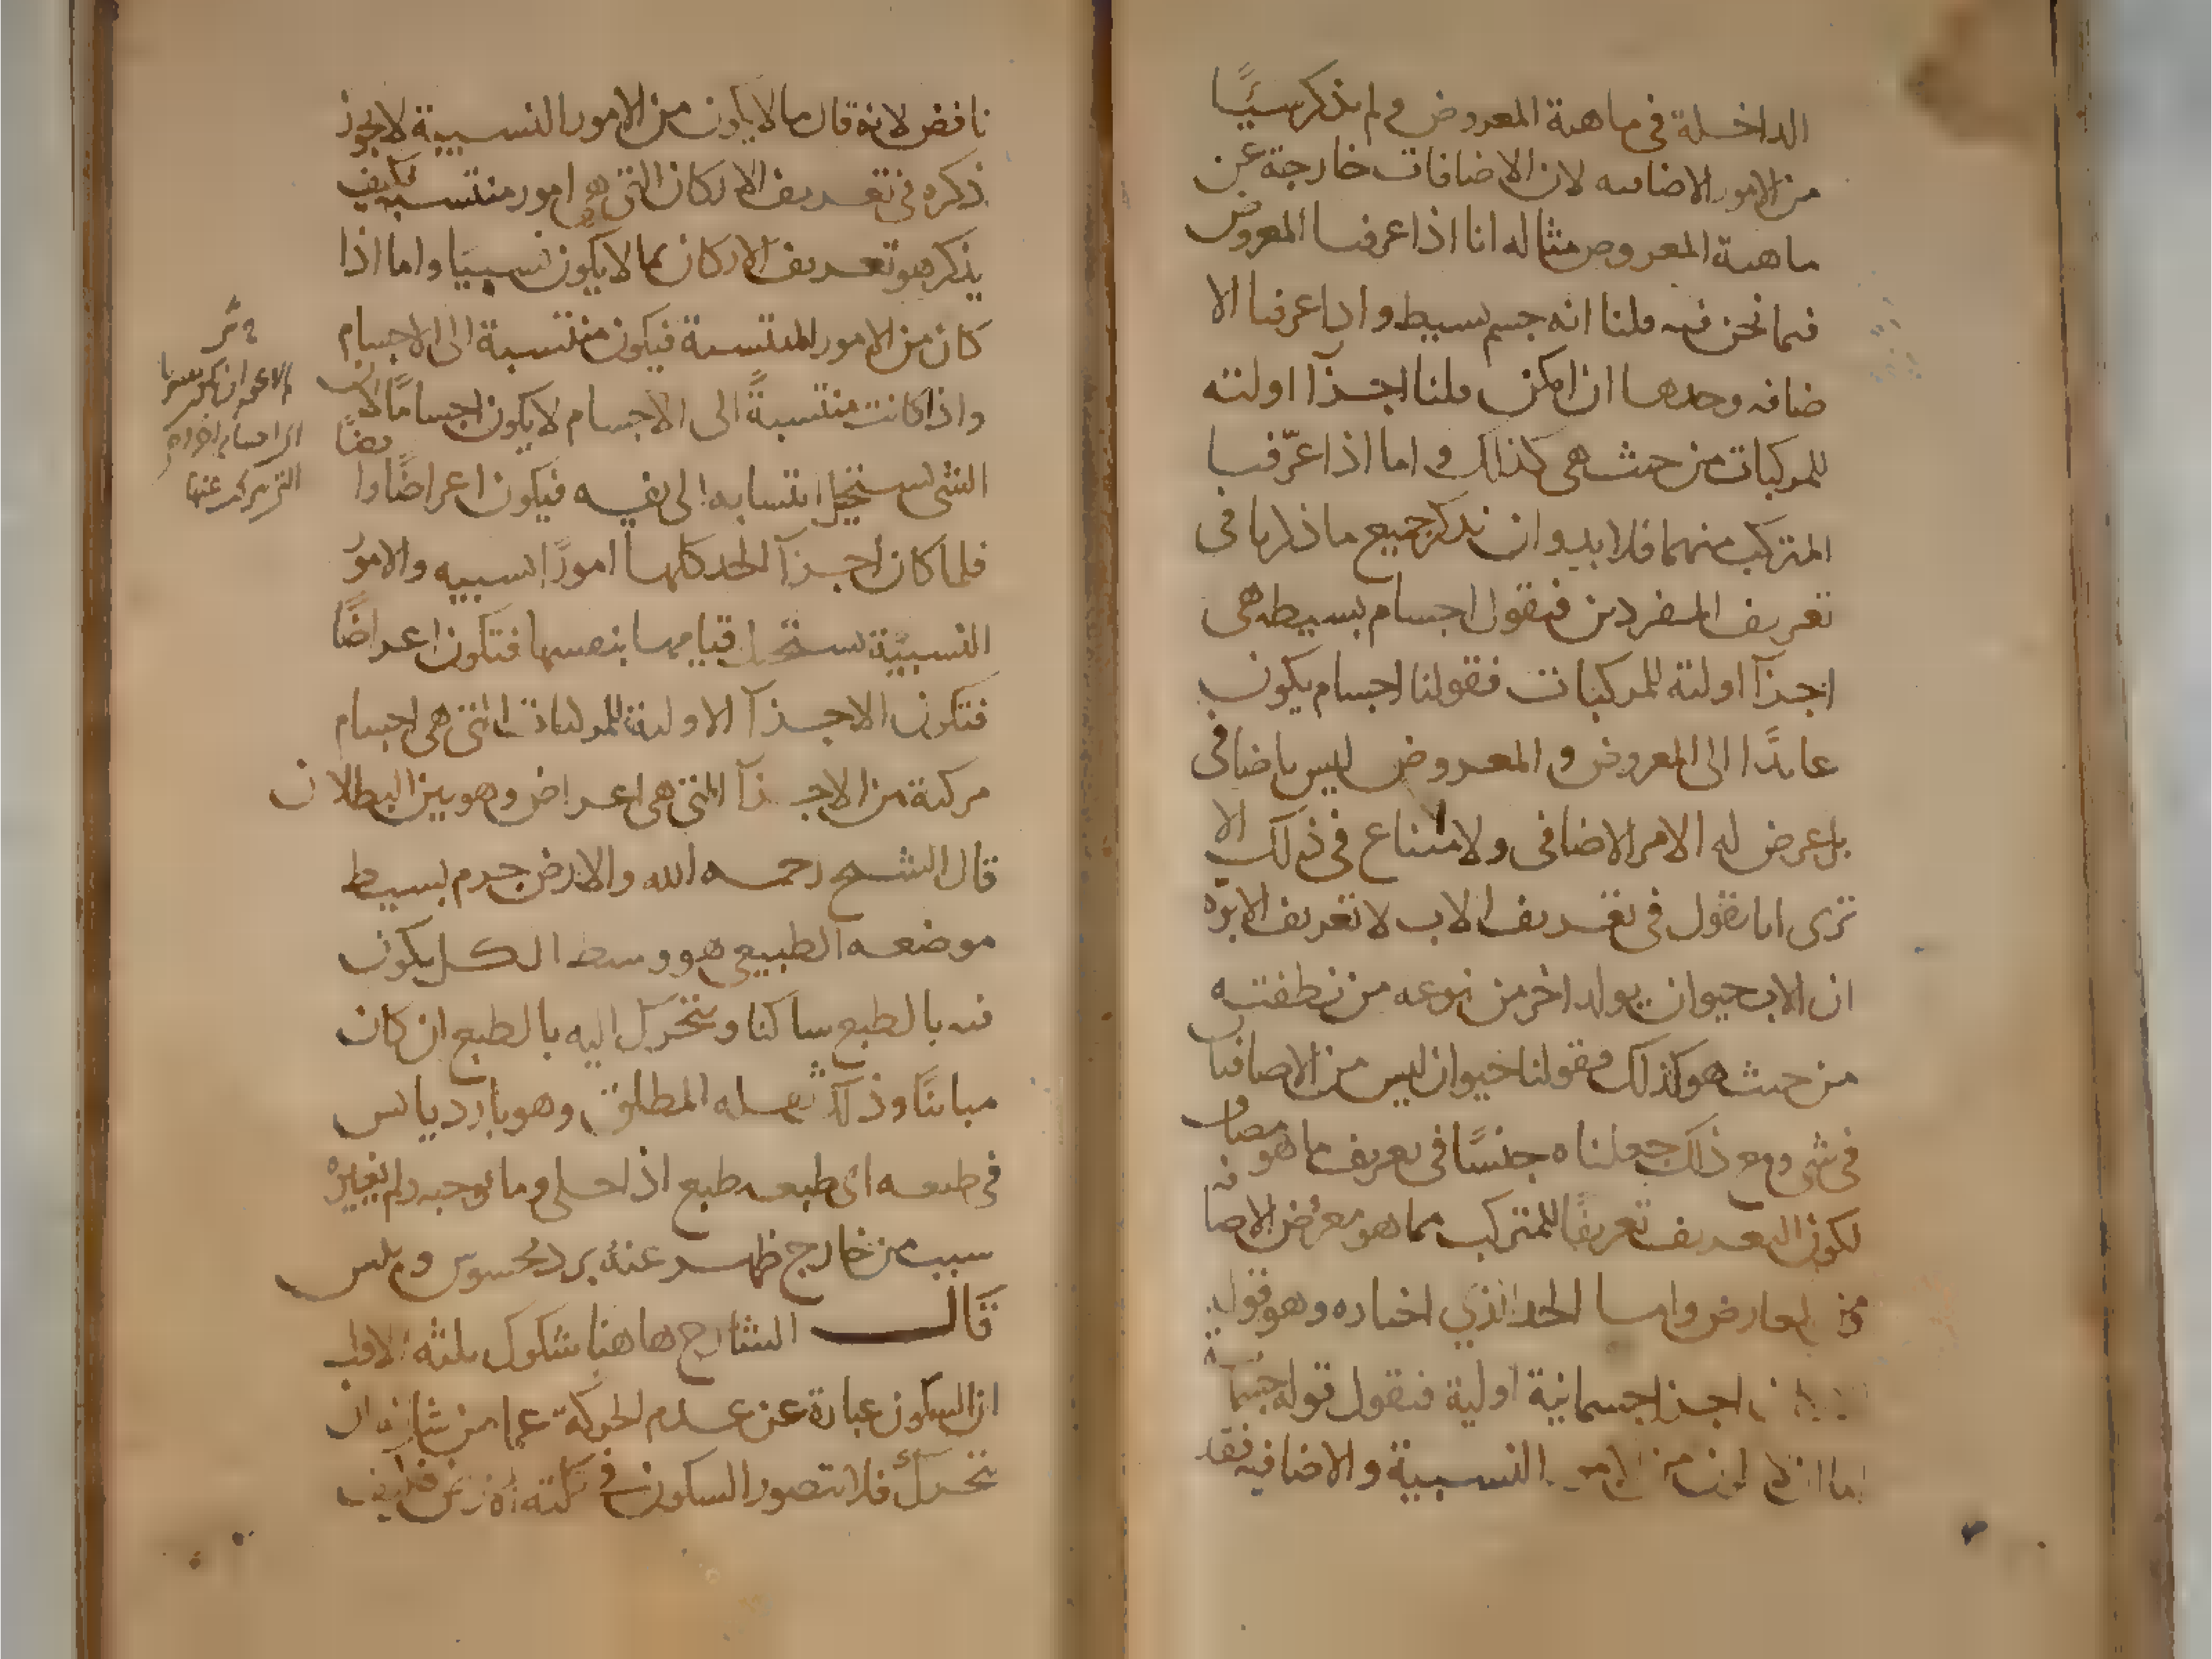 الداخلة في ماهية المعروض ولم يذكر شيًا
من الامور الاضافيه لان الاضافات خارجة عن
ماهية المعروض مثاله انا اذا عرفنا المعروض
فيما نحن فيه قلنا انه جسم بسيط واذا عرفنا الا
ضافه وحدها ان امكن قلنا اجزآ اولية
للمركبات من حيث هي كذلك واما اذا عرّفنا
المتركب منهما فلا بد وان نذكر جميع ما ذكرنا في
تعريف المفردين فنقول اجسام بسيطه هي
اجزآ اولية للمركبات فقولنا اجسام يكون
عايدًا الى المعروض والمعروض ليس باضافي
بل عرض له الامر الاضافي ولا امتناع في ذلك الا
ترى انا نقول في تعريف الاب لا تعريف الابوّة
ان الاب حيوان يولد اخر من نوعه من نطفته
من حيث هو كذلك فقولنا حيوان ليس من الاضافيات
في شي ومع ذلك جعلناه جنسًا في تعريف ما هو مضاف
لكون التعريف تعريفًا للمتركب مما هو معروض الاضافة
من العارض واما الحد الذي اختاره وهو قوله
اجزا جسمانية اولية فنقول قوله جسمانية
اما من الامور النسبية والاضافيه فقد
ناقض لانه قال ما لا يكون من الامور النسبية لا يجوز
ذكره في تعريف الاركان التي هي امور منتسبه فكيف
يذكر هو تعريف الاركان بما لا يكون نسبيًا واما اذا
كان من الامور المنتسبة فيكون منتسبة الى الاجسام
واذا كانت منتسبةً الى الاجسام لا يكون اجسامًا لان
الشى يستحيل انتسابه الى نفسه فيكون اعراضًا
فلما كان اجزآ الحد كلها امورًا نسبيه والامور
النسبيّة يستحيل قيامها بنفسها فتكون اعراضًا
فتكون الاجزآ الاولية للمركبات التي هي اجسام
مركبة من الاجزآ التي هي اعراض وهو بين البطلان
قال الشيخ رحمه الله والارض جرم بسيط
موضعه الطبيعي هو وسط الكل يكون
فيه بالطبع ساكنا ويتحرك اليه بالطبع ان كان
مباينًا وذلك ثقله المطلق وهو بارد يابس
في طبعه اى طبعه طبع اذا خلى وما يوجبه ولم يغيره
سبب من خارج ظهر عنه برد محسوس ويبس
قال الشارح هاهنا شكوك ثلثه الاول
ان السكون عبارة عن عدم الحركة عما من شانه ان
يتحرك فلا يتصور السكون في كلية الارض فكيف